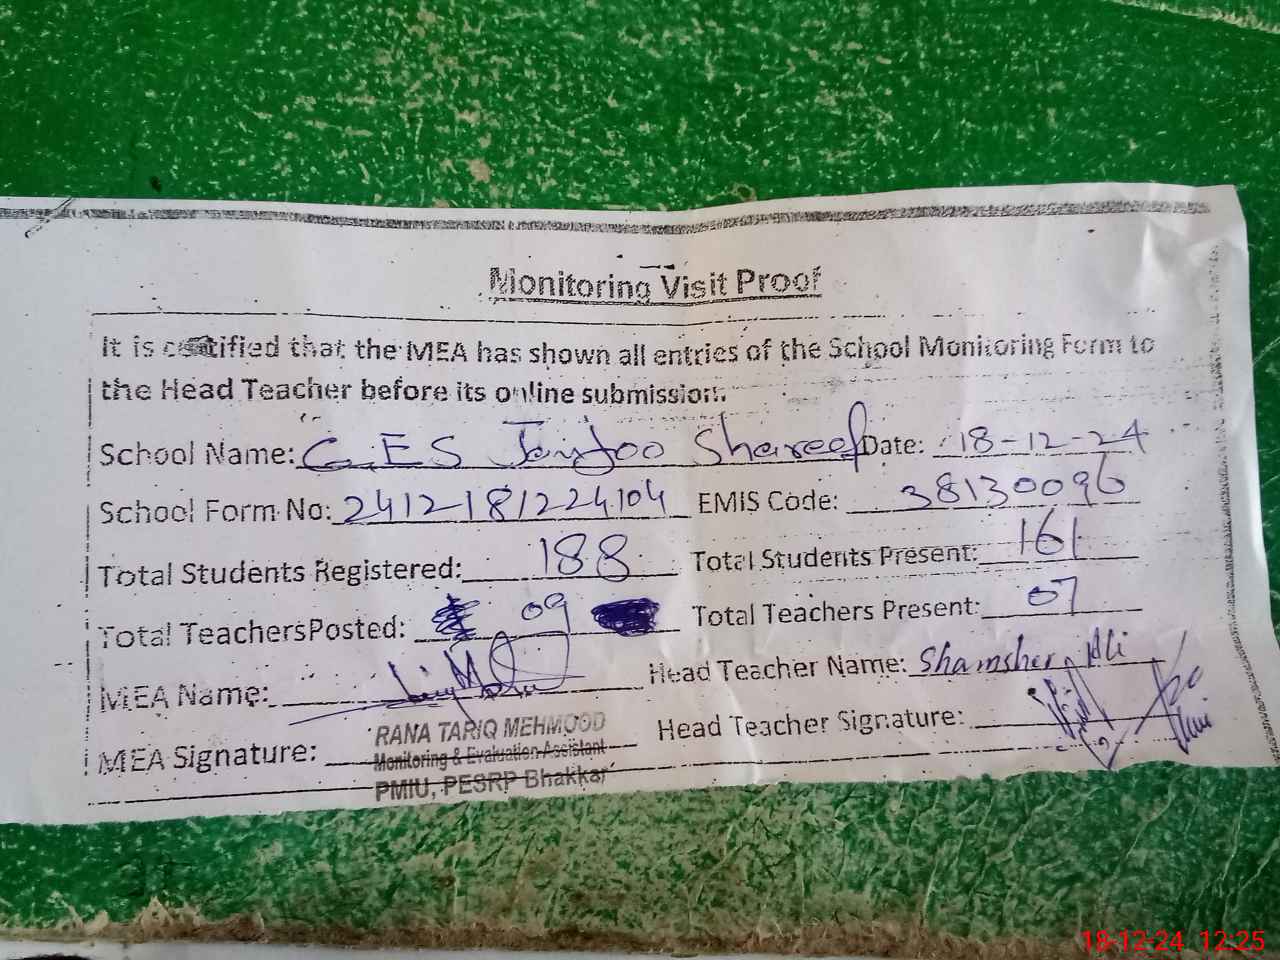 Monitoring Visit Proof
It is certified that the MEA has shown all entries of the School Monitoring Form to
the Head Teacher before its online submission.
School Name: G.E.S Janjoo Shareef Date: 18-12-24
School Form No: 2412-181224104 EMIS Code: 38130096
Total Students Registered: 188 Total Students Present: 161
Total Teachers Posted: 09 Total Teachers Present: 07
MEA Name: Head Teacher Name: Shamsher Ali
MEA Signature: Head Teacher Signature:
RANA TARIQ MEHMOOD
Monitoring & Evaluation Assistant
PMIU, PESRP Bhakkar
18-12-24 12:25